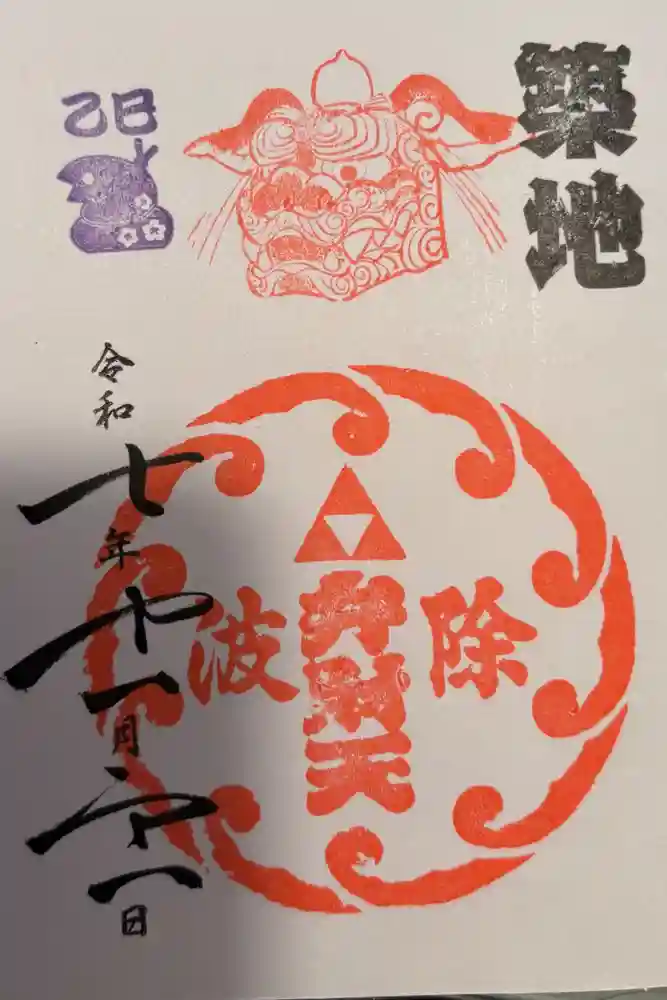 築地
乙巳
波除
辨財天
令和七年十一月二十一日